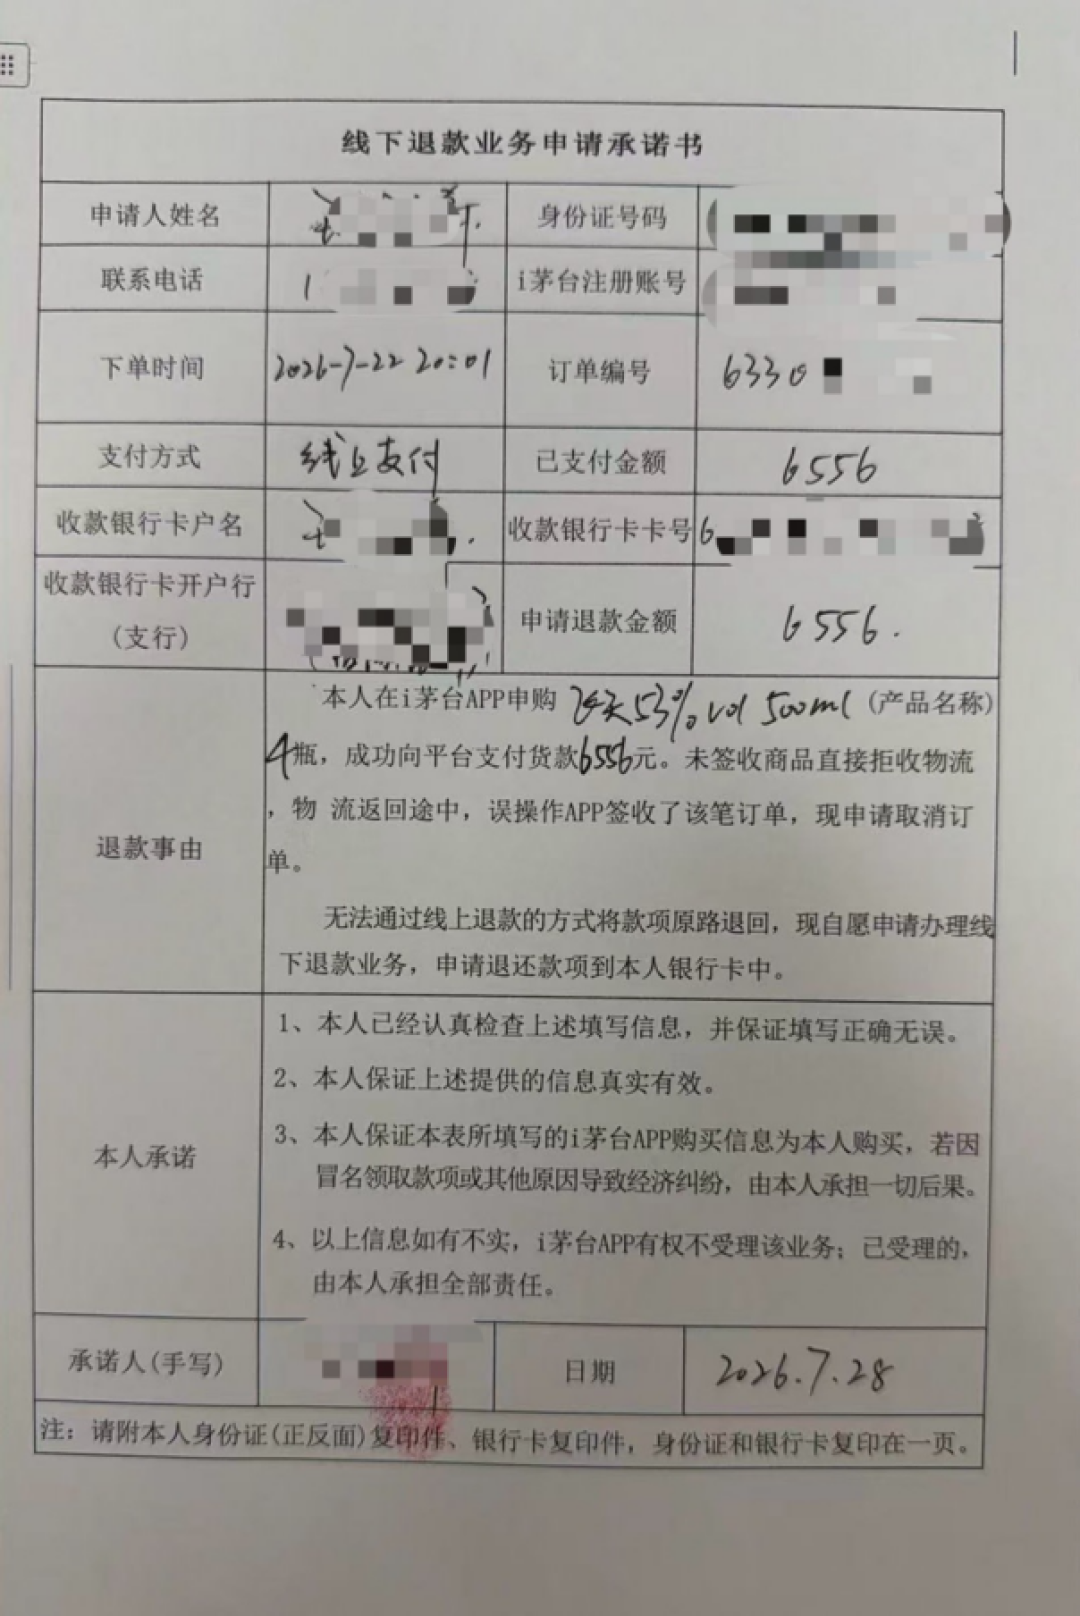 线下退款业务申请承诺书
申请人姓名 身份证号码
联系电话 1 i茅台注册账号
下单时间 2026-7-22 20:01 订单编号 6330
支付方式 线上支付 已支付金额 6556
收款银行卡户名 收款银行卡卡号 6
收款银行卡开户行
(支行) 申请退款金额 6556.
退款事由
本人在i茅台APP申购 53%vol 500ml (产品名称)
4瓶，成功向平台支付货款6556元。未签收商品直接拒收物流
，物 流返回途中，误操作APP签收了该笔订单，现申请取消订
单。
无法通过线上退款的方式将款项原路退回，现自愿申请办理线
下退款业务，申请退还款项到本人银行卡中。
本人承诺
1、本人已经认真检查上述填写信息，并保证填写正确无误。
2、本人保证上述提供的信息真实有效。
3、本人保证本表所填写的i茅台APP购买信息为本人购买，若因
冒名领取款项或其他原因导致经济纠纷，由本人承担一切后果。
4、以上信息如有不实，i茅台APP有权不受理该业务；已受理的，
由本人承担全部责任。
承诺人(手写) 日期 2026.7.28
注：请附本人身份证(正反面)复印件、银行卡复印件，身份证和银行卡复印在一页。